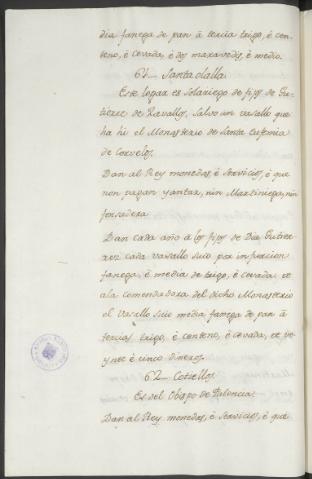 dia fanega de pan â tercia trigo, è cen
teno, è cevada, è dos maravedis, è medio.
61_ Santa olalla.
Este logar es Solariego de fijos de Gu
tierre de Zavallos, Salvo un vasallo que
ha hi el Monasterio de Santa Eufemia
de Cozuelos.
Dan al Rey monedas, è Servicios, è que
non pagan yantar, nin Martiniega, nin
fonsadera.
Dan cada año a los fijos de Dia Gutier
rez cada vasallo suio por infurcion
fanega, è media de trigo, è cevada, et
a la comendadora del dicho Monasterio
el Vasallo suio media fanega de pan â
tercias trigo, è centeno, è cevada, et ve
ynte è cinco dineros.
62_ Cossellos.
Es del Obispo de Palencia.
Dan al Rey monedas, è Servicios, è que